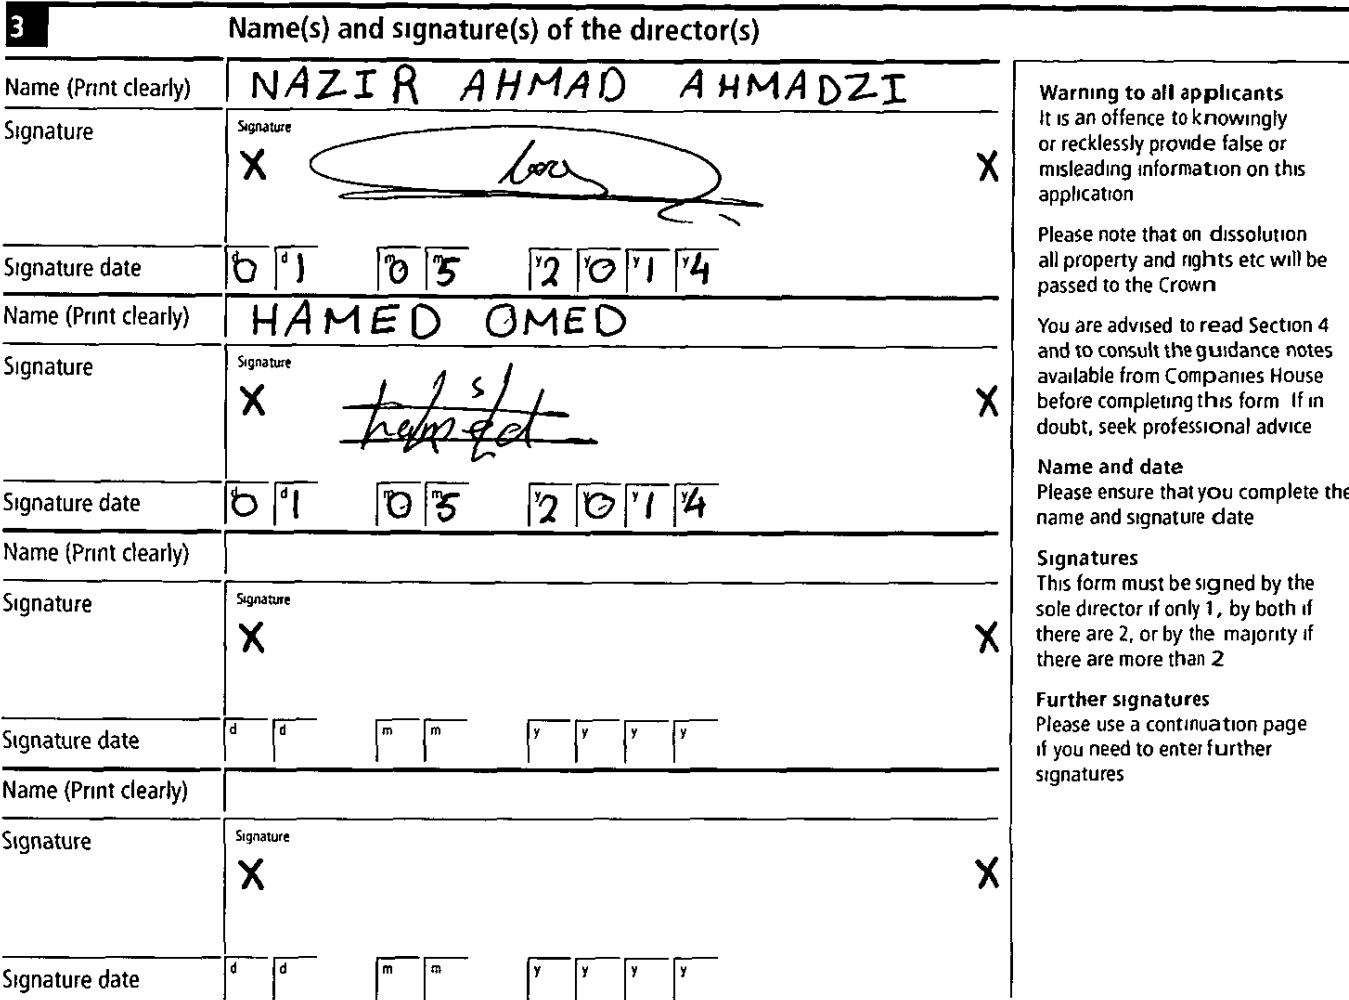 3 Name(s) and signature(s) of the director(s)
Name (Print clearly) NAZIR AHMAD AHMADZI
Signature Signature
X X
Signature date d0 d1 m0 m5 y2 y0 y1 y4
Name (Print clearly) HAMED OMED
Signature Signature
X hamed X
Signature date d0 d1 m0 m5 y2 y0 y1 y4
Name (Print clearly)
Signature Signature
X X
Signature date d d m m y y y y
Name (Print clearly)
Signature Signature
X X
Signature date d d m m y y y y
Warning to all applicants
It is an offence to knowingly
or recklessly provide false or
misleading information on this
application
Please note that on dissolution
all property and rights etc will be
passed to the Crown
You are advised to read Section 4
and to consult the guidance notes
available from Companies House
before completing this form If in
doubt, seek professional advice
Name and date
Please ensure that you complete the
name and signature date
Signatures
This form must be signed by the
sole director if only 1, by both if
there are 2, or by the majority if
there are more than 2
Further signatures
Please use a continuation page
if you need to enter further
signatures